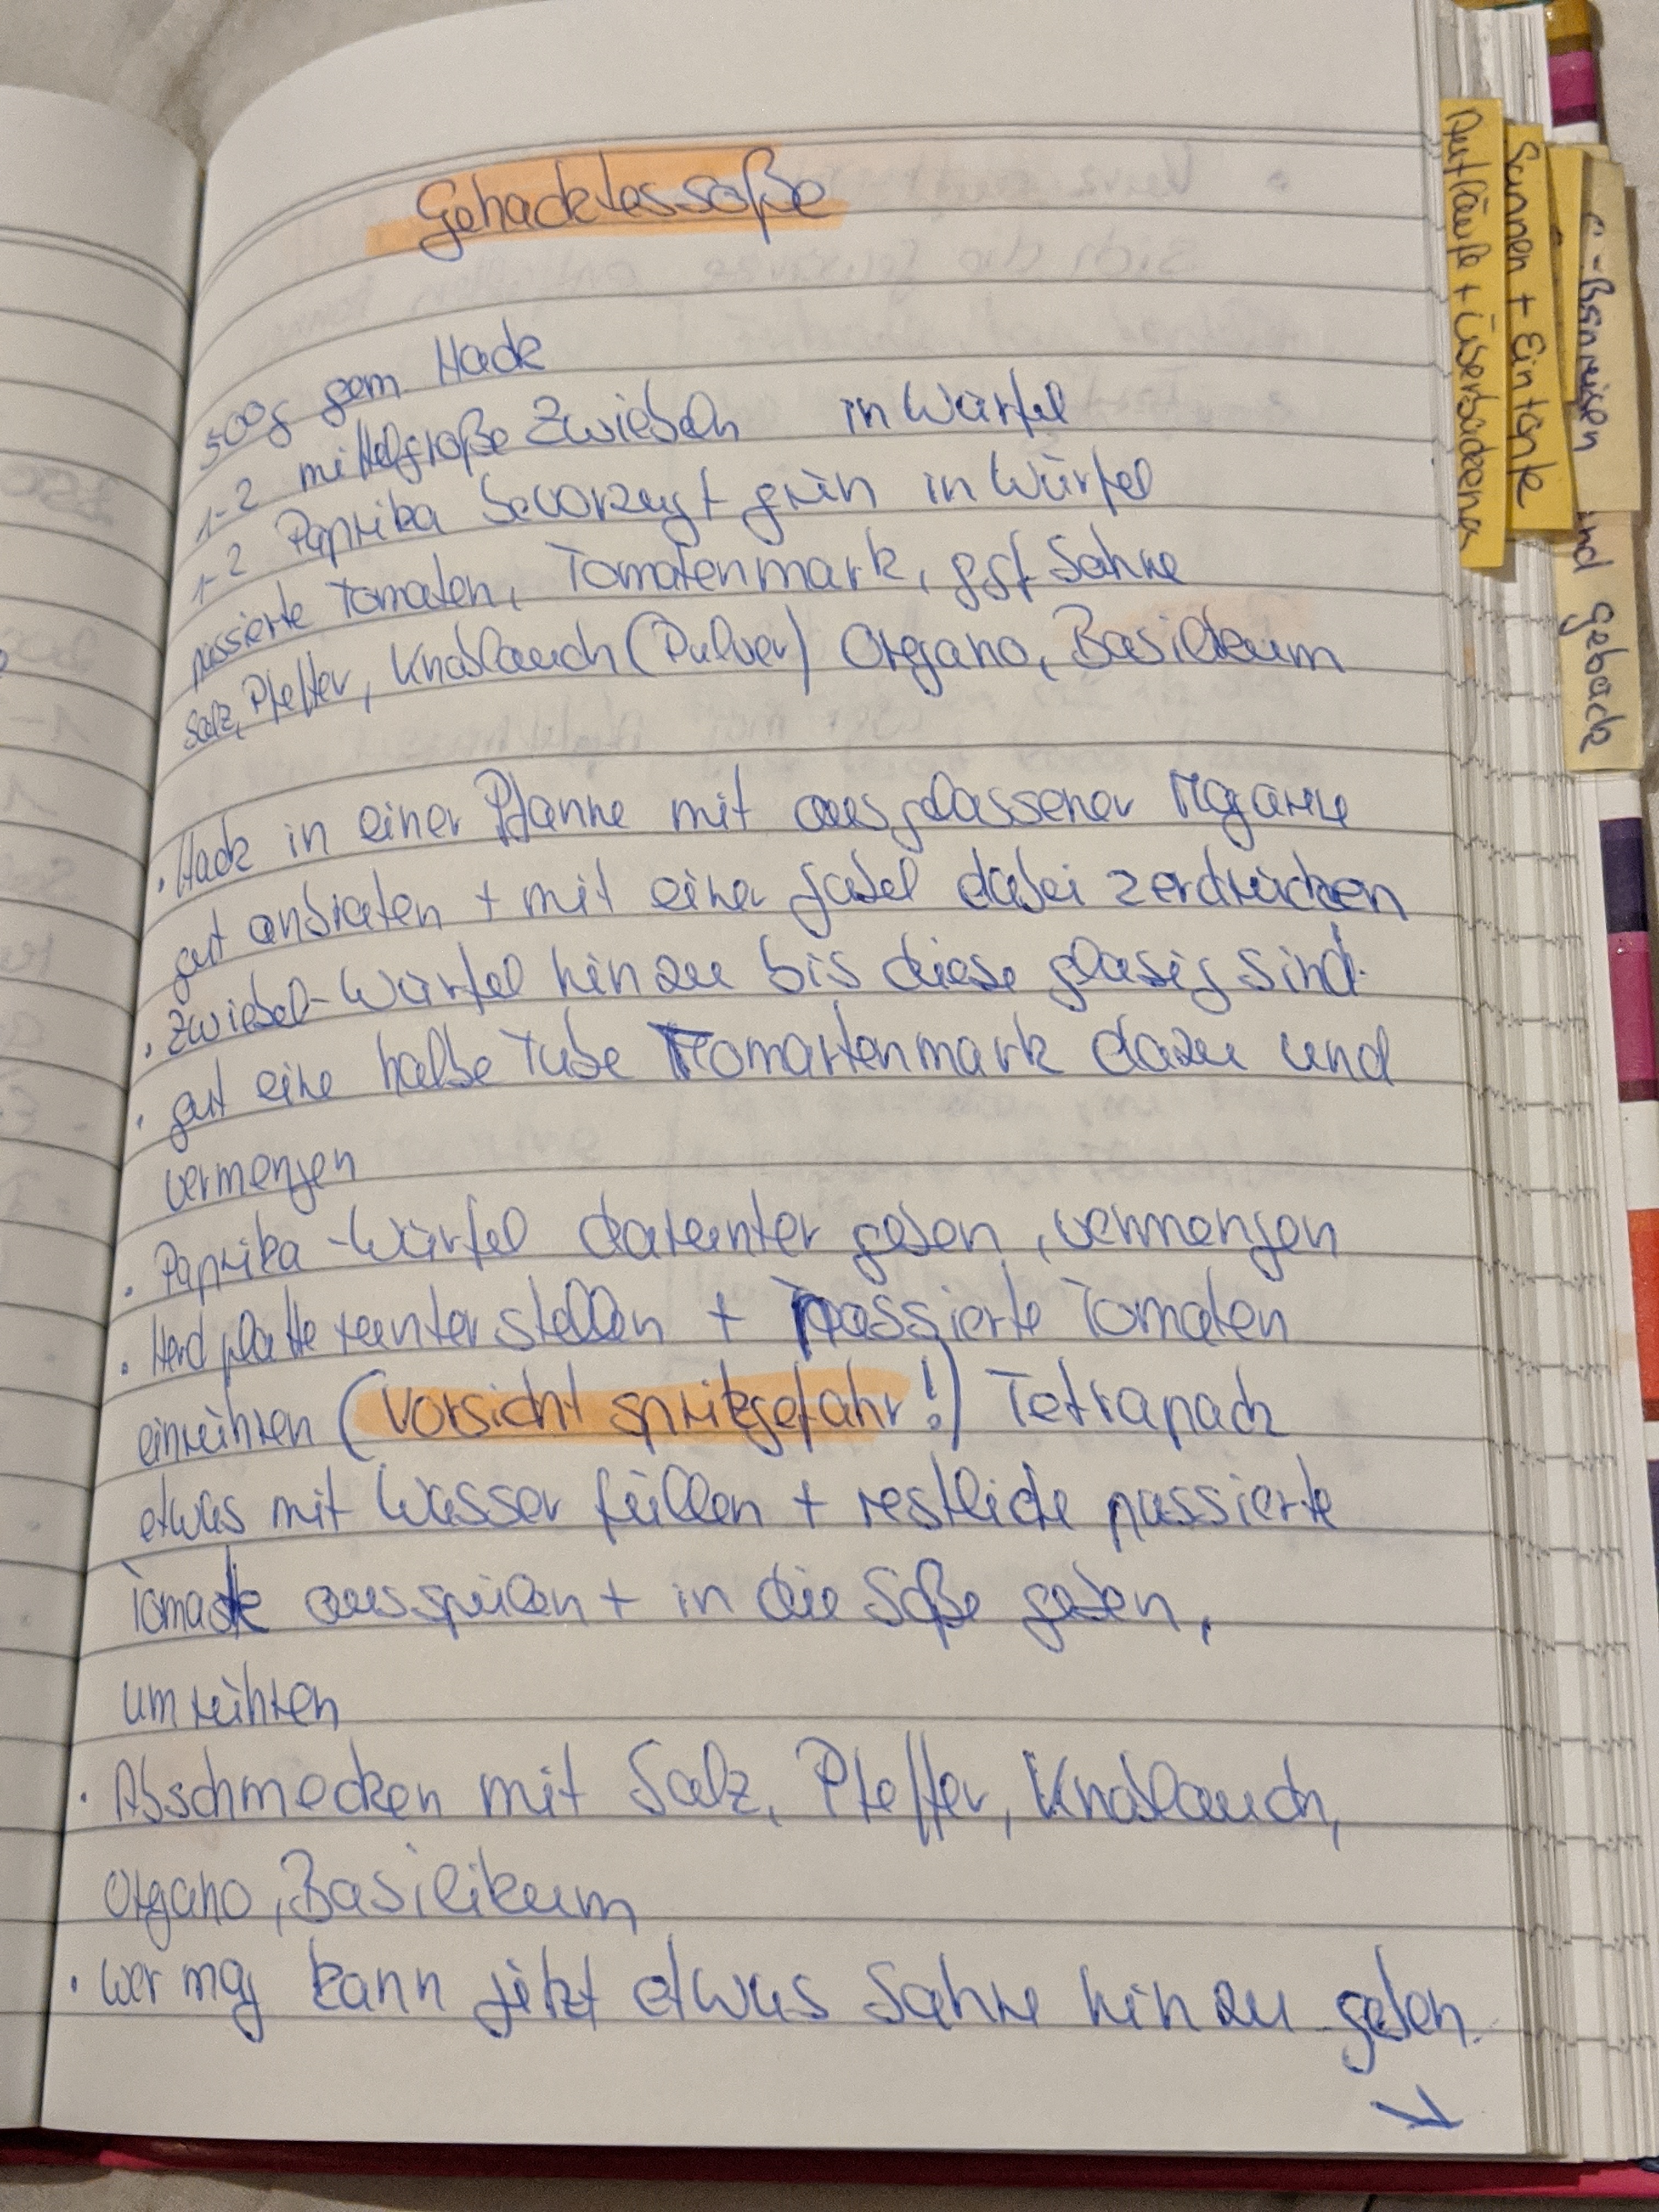 Gehacktessoße
500g gem. Hack
1-2 mittelgroße Zwiebeln in Würfel
1-2 Paprika bevorzugt grün in Würfel
passierte Tomaten, Tomatenmark, ggf Sahne
Salz, Pfeffer, Knoblauch (Pulver) Oregano, Basilikum
· Hack in einer Pfanne mit ausgelassener
gut anbraten + mit einer Gabel dabei zerdrücken
· Zwiebel-Würfel hinzu bis diese glasig sind.
· gut eine halbe Tube Tomartenmark dazu und
vermengen
· Paprika-Würfel darunter geben, vermengen
· Herdplatte runter stellen + passierte Tomaten
einrühren (Vorsicht spritzgefahr!) Tetrapack
etwas mit Wasser füllen + restliche passierte
Tomate ausspülen + in die Soße geben,
umrühren
· Abschmecken mit Salz, Pfeffer, Knoblauch,
Oregano, Basilikum
· wer mag kann jetzt etwas Sahne hinzu geben.
Aufläufe + Überbackenes
Suppen + Eintöpfe
und Gebäck